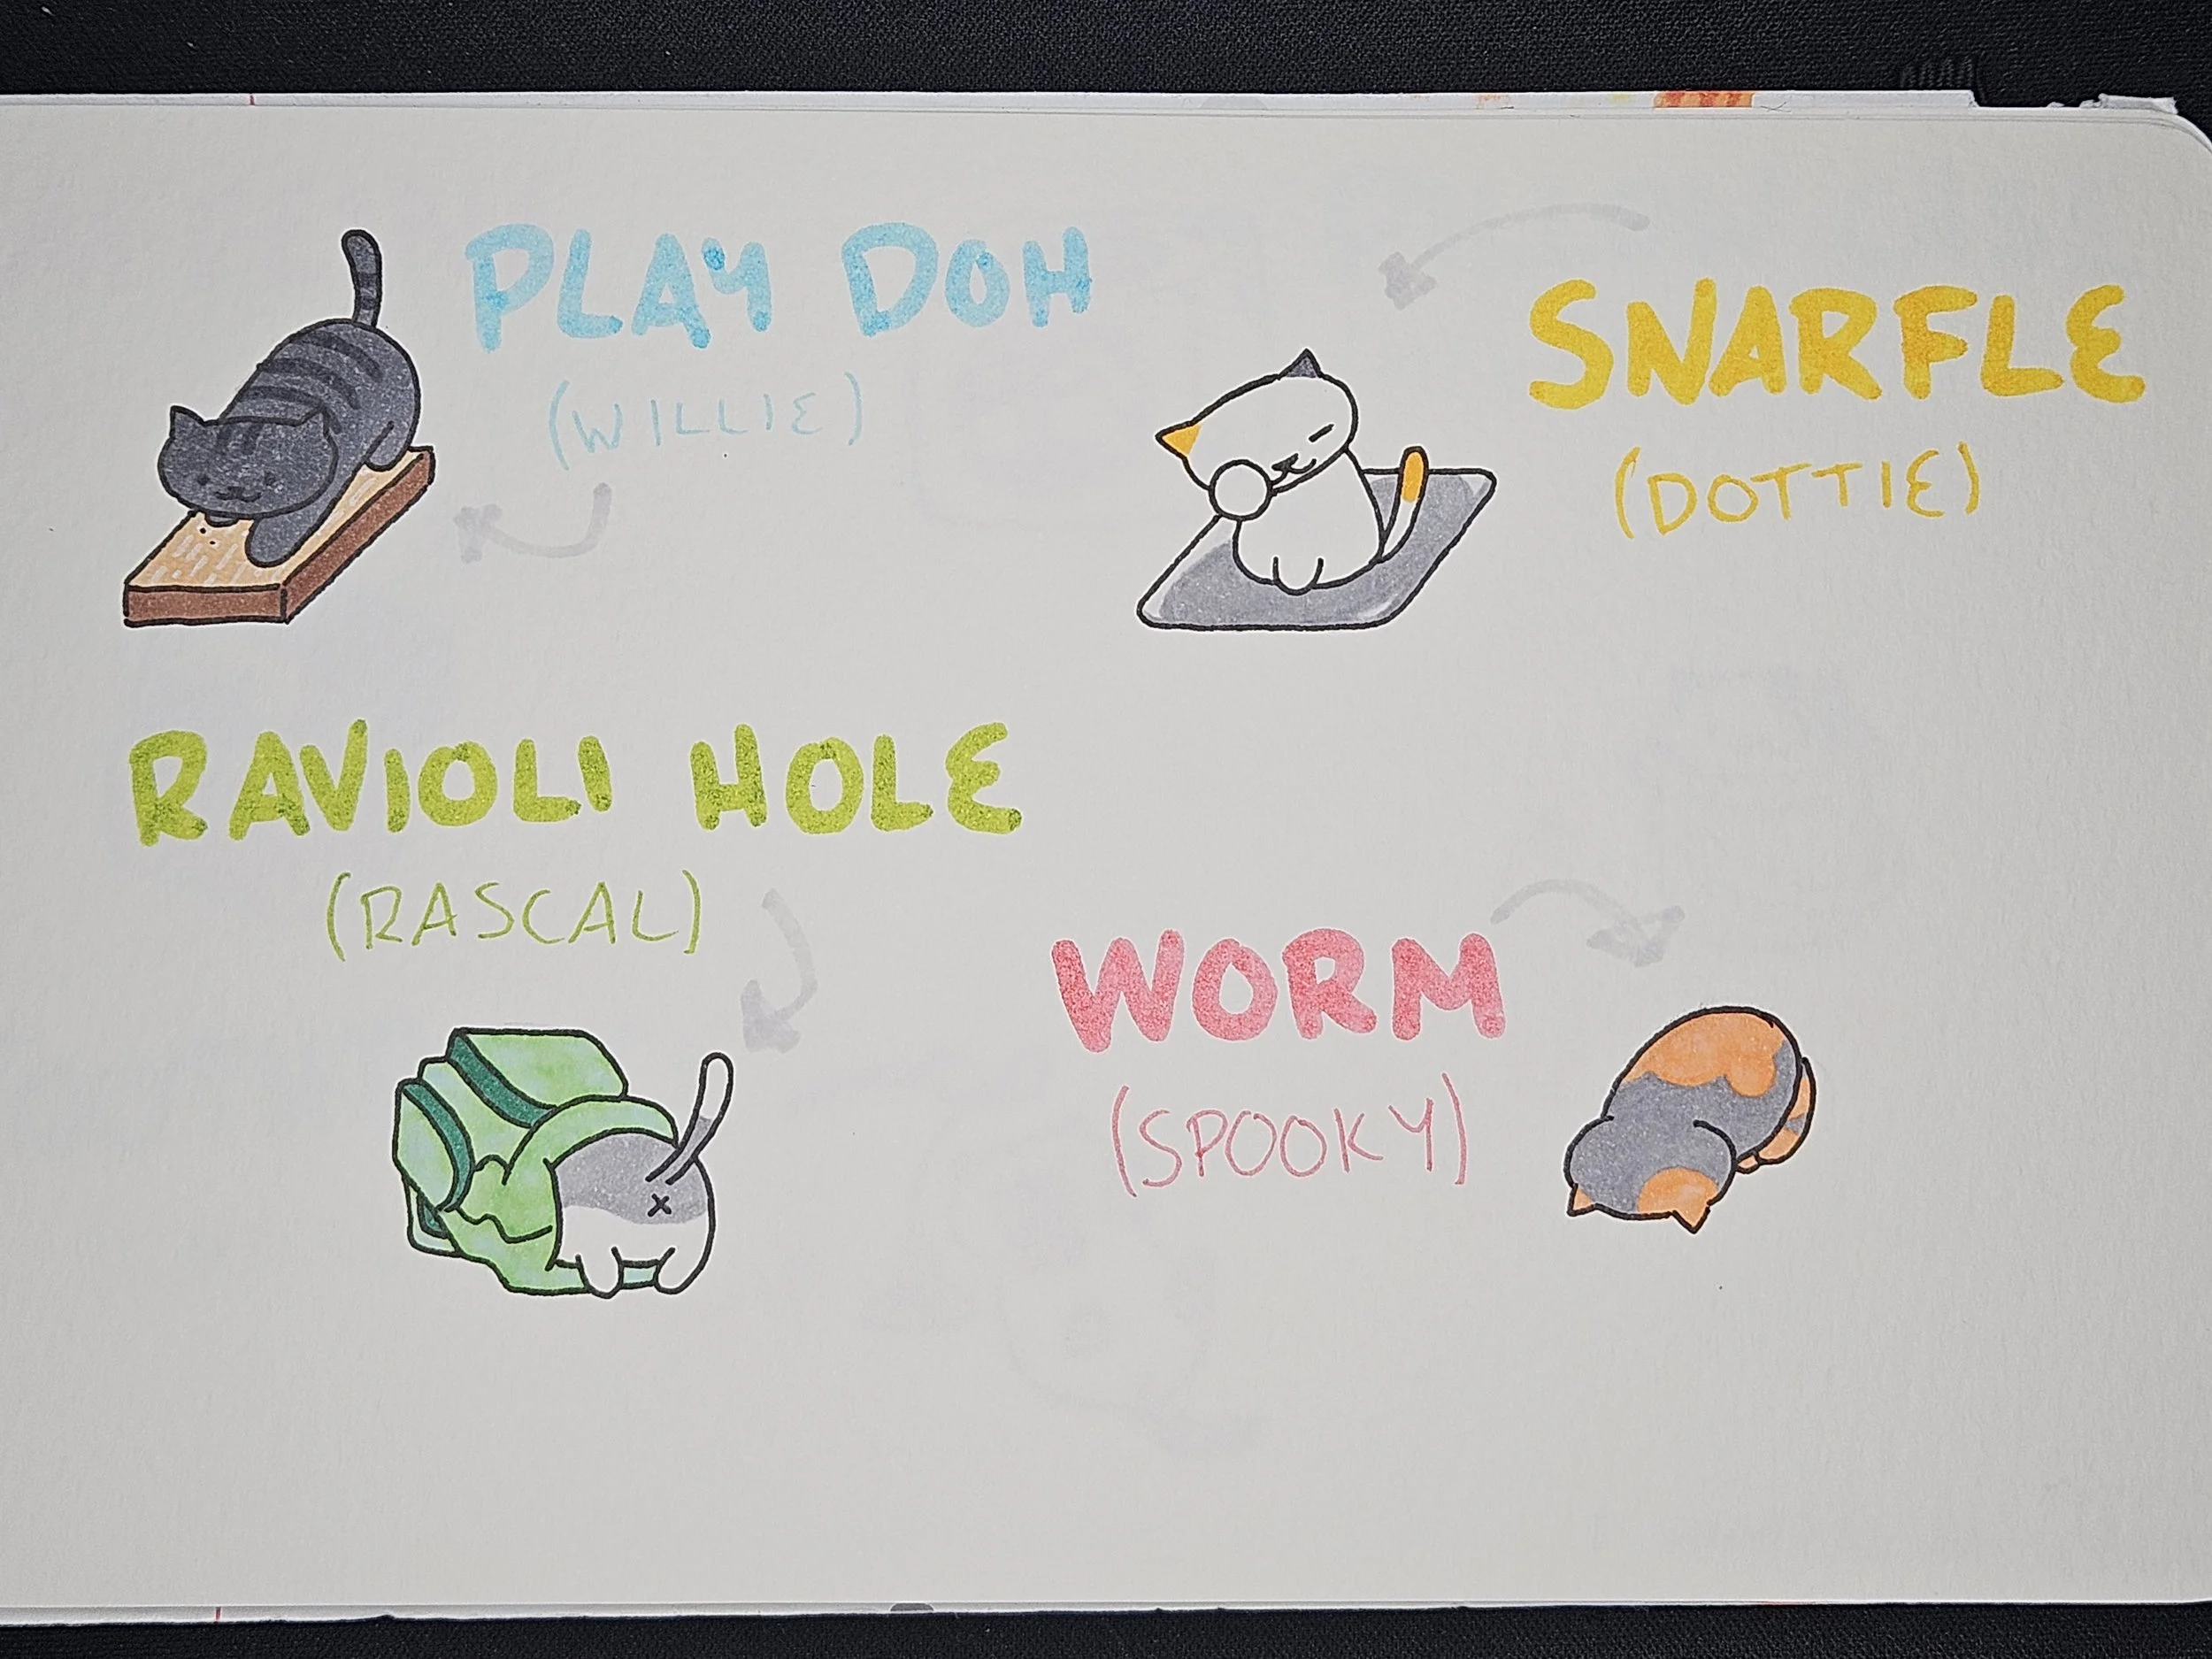 PLAY DOH
(WILLIE)
SNARFLE
(DOTTIE)
RAVIOLI HOLE
(RASCAL)
WORM
(SPOOKY)